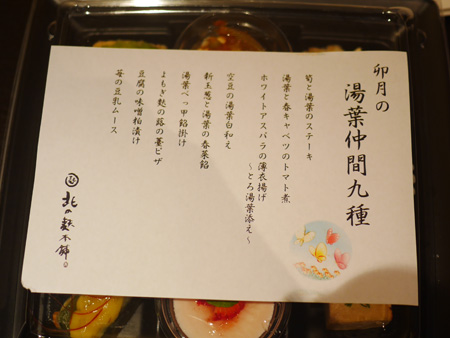 卯月の
湯葉仲間九種
筍と湯葉のステーキ
湯葉と春キャベツのトマト煮
ホワイトアスパラの薄衣揚げ
〜とろ湯葉添え〜
空豆の湯葉白和え
新玉葱と湯葉の春菜餡
湯葉べっ甲餡掛け
よもぎ麩の蕗の薹ピザ
豆腐の味噌粕漬け
苺の豆乳ムース
北の麩本舗